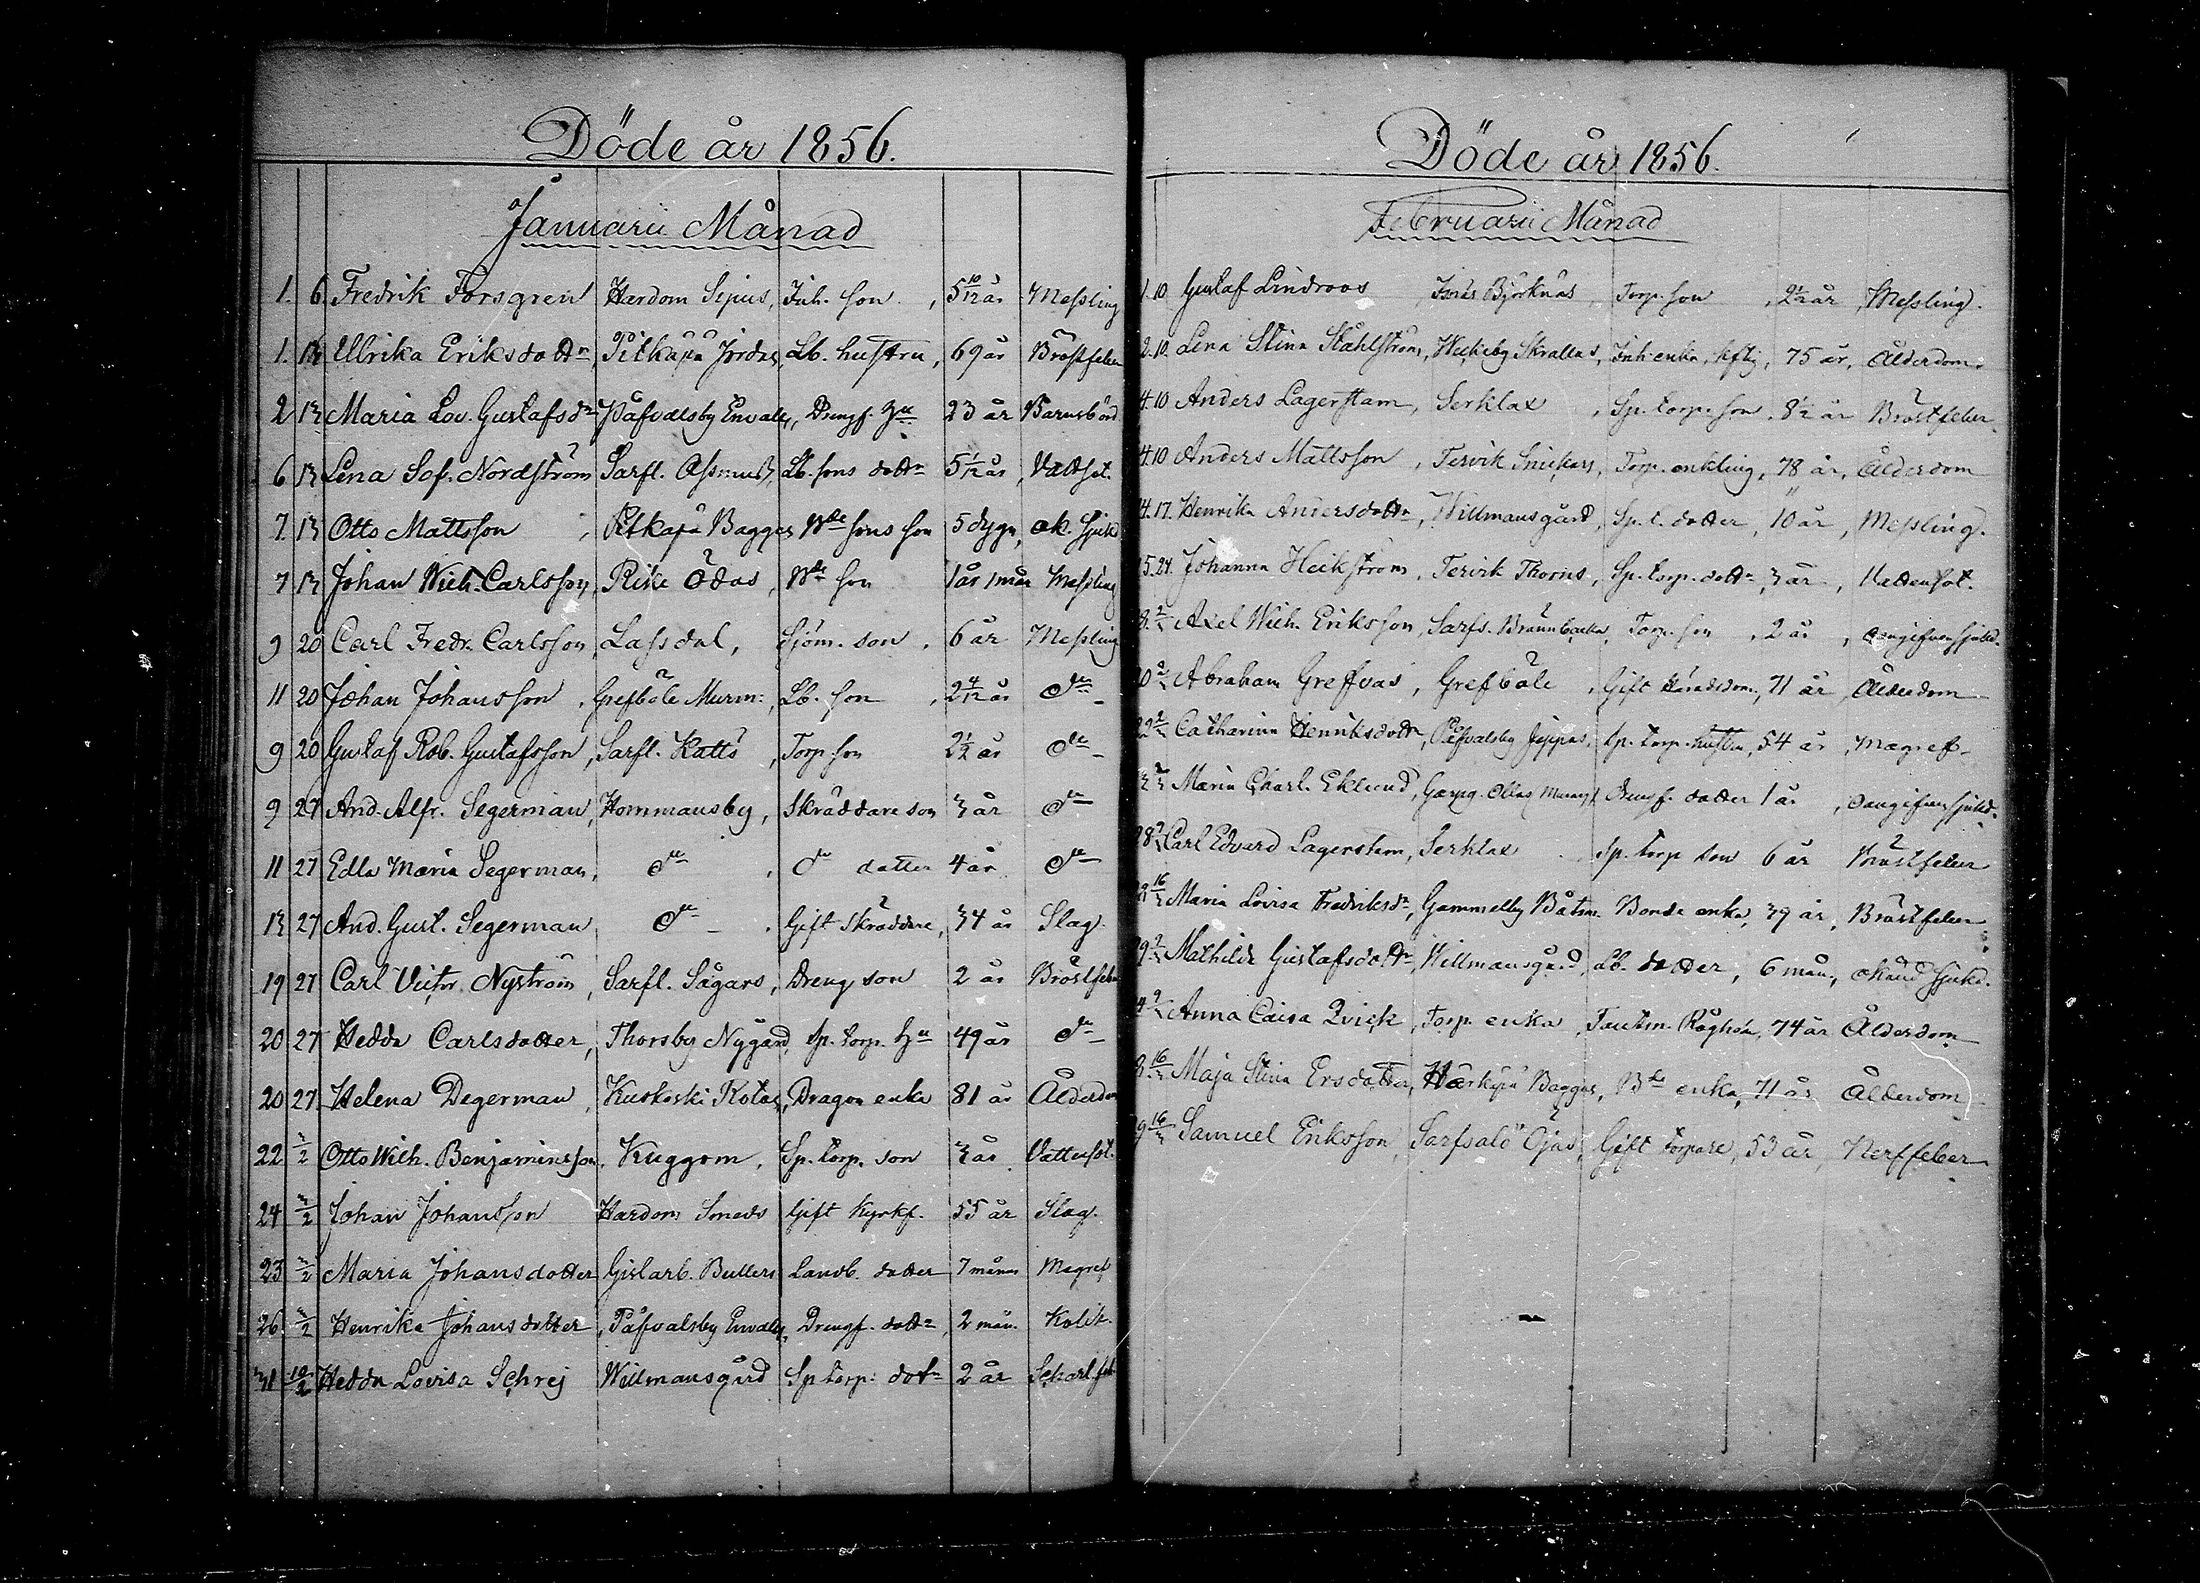 Döde år 1856.
Januarii Månad
1. 6. Fredrik Forsgren Hardom Sipus, Inh. son, 5 10/12 år Messling
1. 13 Ulrika Eriksdottr, Pitkäpä Jordas, Lb. hustru, 69 år Bröstfeber
2 13 Maria Lov. Gustafsdr Påfvalsby Envalds, Drengf. Hu 23 år Barnsbörd
6 13 Lena Sof. Nordström Sarfl. Assmus, Lb. sons dottr 5 1/12 år, Vattsot.
7 13 Otto Mattsson, Pitkäpä Bagges Bde sons son 5 dygn, ok. sjukd
7 13 Johan Wilh. Carlsson, Rike Ödas, Bde son 1 år 1 mån Messling
9 20 Carl Fredr. Carlsson, Lassdal, Sjöm. son, 6 år Messling
11 20 Johan Johansson, Grefböle Murm:, Lb. son, 2 4/12 år do
9 20 Gustaf Rob. Gustafsson, Sarfl. Katts, Torp. son 2 1/2 år do
9 27 And. Alfr. Segerman, Hommansby, Skräddare son 3 år do
11 27 Edla Maria Segerman, do, do dotter 4 år do
13 27 And. Gust. Segerman do, Gift Skräddare, 34 år Slag.
19 27 Carl Victor Nyström, Sarfl. Sågars, Dreng son 2 år Bröstfeber
20 27 Hedda Carlsdotter, Thorsby Nygård, Sp. torp. Hu 49 år do
20 27 Helena Degerman, Kuskoski Kotas, Dragon enka 81 år Ålderdom
22 3/2 Otto Wilh. Benjaminsson, Kuggom, Sp. torp. son 3 år Vattusot.
24 3/2 Johan Johansson Hardom Smeds Gift Kyrkf. 55 år Slag.
23 3/2 Maria Johansdotter Gislarb. Bullers Landb. dotter 7 månr Magref
26 3/2 Henrika Johansdotter, Påfvalsby Envalds, Drengf. dottr, 2 mån. Kolik.
31 10/2 Hedda Lovisa Schrej Willmansgård Sp. torp: dotr 2 år Scharl. feb
Döde år 1856.
Februarii Månad
1. 10 Gustaf Lindroos Isnäs Björknäs, Torp. son, 2 1/2 år, Messling.
2. 10. Lena Stina Ståhlström, Weckeby Skrallas, Inh. enka, hftg, 75 år, Ålderdom.
4. 10 Anders Lagerstam, Serklax, Sp. torp. son, 8 1/2 år Bröstfeber.
4. 10 Anders Mattsson, Tervik Snickars, Torp. enkling, 78 år, Ålderdom
14. 17. Henrika Andersdottr, Willmansgård, Sp. t. dotter, 10 år, Messling.
15. 24. Johanna Heikström, Tervik Thorns, Sp. torp. dottr, 3 år, Vattensot.
18. 2/3 Axel Wilh. Eriksson, Sarfs. Brännbacka, Torp. son, 2 år, oangifven sjukd.
20 2/3 Abraham Greffvas, Grefböle, Gift Häradsdom., 71 år, Ålderdom
22 2/3 Catharina Henriksdottr, Påfvalsby Jeppas, Sp. torp. hustru, 54 år, Magref.
2/3 Maria Charl. Eklund, Garpg. Ollas Drengf. dotter 1 år, oangifven sjukd.
28 2/3 Carl Edvard Lagerstam, Serklax Sp. torp son 6 år Bröstfeber
16/3 Maria Lovisa Fredriksdr, Gammelby Båtsm. Bonde enka, 39 år, Bröstfeber
29 2/3 Mathilda Gustafsdottr, Willmansgård, Lb. dotter, 6 mån., okänd sjukd.
2/3 Anna Caisa Qvick, Torp. enka, Tautm. Rågholm, 74 år Ålderdom
16/3 Maja Stina Ersdotter, Härkäpä Bagges, Bde enka, 71 år Ålderdom
16/3 Samuel Eriksson, Sarfsalö Öjas, Gift torpare, 53 år, Nerffeber